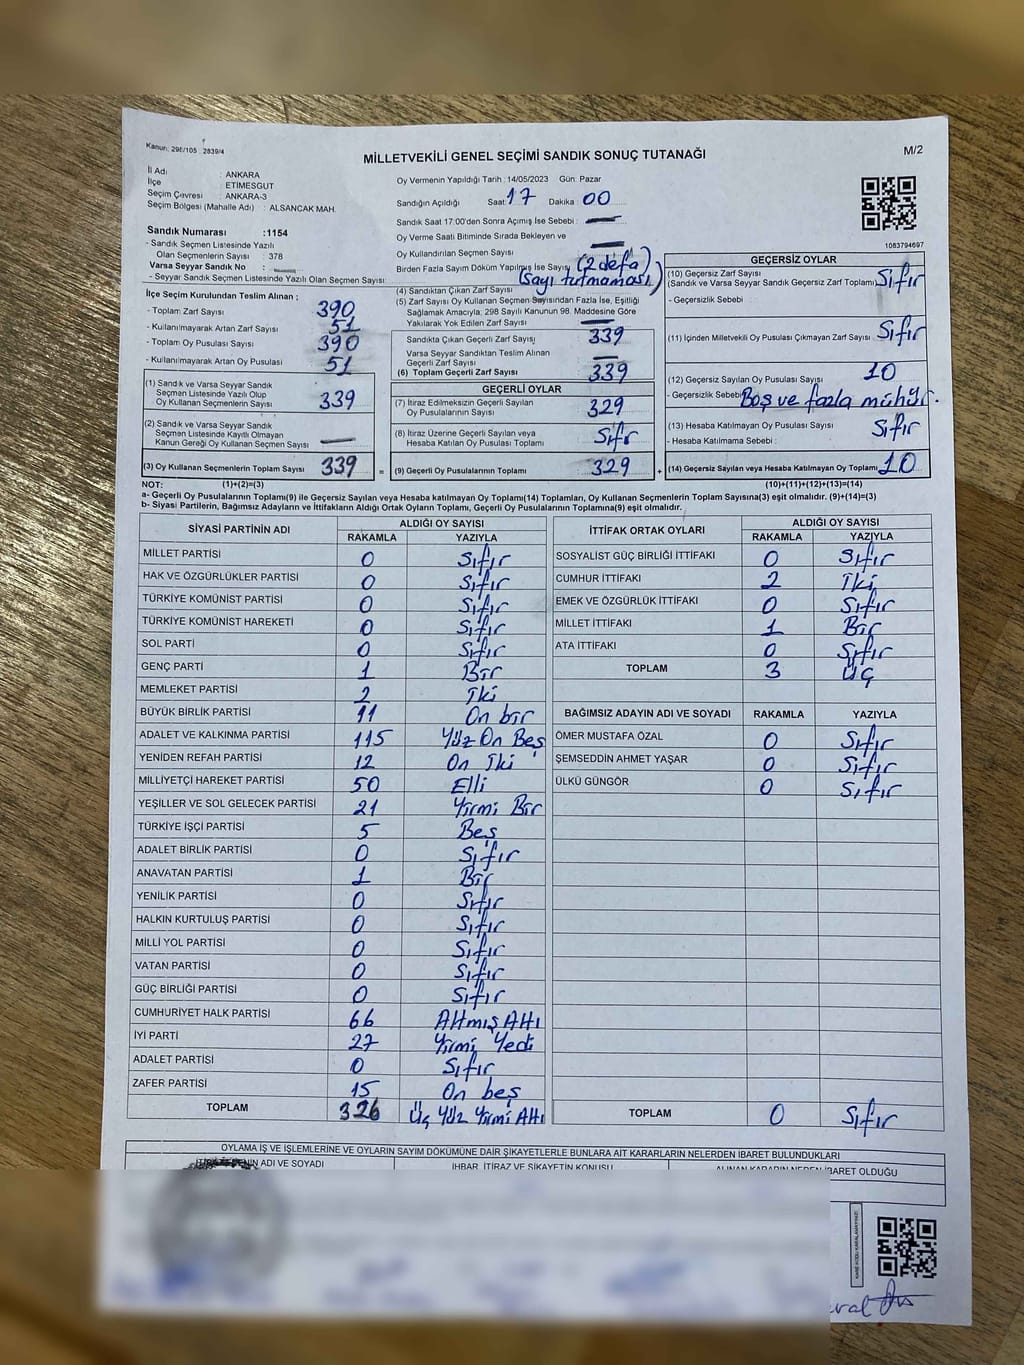 Kanun: 298/105 2839/4
MİLLETVEKİLİ GENEL SEÇİMİ SANDIK SONUÇ TUTANAĞI
M/2
İl Adı : ANKARA
İlçe ETİMESGUT
Seçim Çevresi ANKARA-3
Seçim Bölgesi (Mahalle Adı) : ALSANCAK MAH.
Sandık Numarası :1154
- Sandık Seçmen Listesinde Yazılı
Olan Seçmenlerin Sayısı : 378
Varsa Seyyar Sandık No :
- Seyyar Sandık Seçmen Listesinde Yazılı Olan Seçmen Sayısı:
Oy Vermenin Yapıldığı Tarih : 14/05/2023 Gün: Pazar
Sandığın Açıldığı Saat 17 Dakika 00
Sandık Saat 17:00'den Sonra Açılmış İse Sebebi :
Oy Verme Saati Bitiminde Sırada Bekleyen ve
Oy Kullandırılan Seçmen Sayısı
Birden Fazla Sayım Döküm Yapılmış İse Sayısı (2 defa)
(sayı tutmaması)
1083794697
İlçe Seçim Kurulundan Teslim Alınan ;
- Toplam Zarf Sayısı : 390
- Kullanılmayarak Artan Zarf Sayısı : 51
- Toplam Oy Pusulası Sayısı : 390
- Kullanılmayarak Artan Oy Pusulası : 51
(1) Sandık ve Varsa Seyyar Sandık
Seçmen Listesinde Yazılı Olup
Oy Kullanan Seçmenlerin Sayısı : 339
(2) Sandık ve Varsa Seyyar Sandık
Seçmen Listesinde Kayıtlı Olmayan
Kanun Gereği Oy Kullanan Seçmen Sayısı
(3) Oy Kullanan Seçmenlerin Toplam Sayısı 339 =
(4) Sandıktan Çıkan Zarf Sayısı
(5) Zarf Sayısı Oy Kullanan Seçmen Sayısından Fazla İse, Eşitliği
Sağlamak Amacıyla, 298 Sayılı Kanunun 98. Maddesine Göre
Yakılarak Yok Edilen Zarf Sayısı
Sandıkta Çıkan Geçerli Zarf Sayısı 339
Varsa Seyyar Sandıktan Teslim Alınan
Geçerli Zarf Sayısı
(6) Toplam Geçerli Zarf Sayısı 339
GEÇERLİ OYLAR
(7) İtiraz Edilmeksizin Geçerli Sayılan
Oy Pusulalarının Sayısı 329
(8) İtiraz Üzerine Geçerli Sayılan veya
Hesaba Katılan Oy Pusulası Toplamı Sıfır
(9) Geçerli Oy Pusulalarının Toplamı 329 +
GEÇERSİZ OYLAR
(10) Geçersiz Zarf Sayısı
(Sandık ve Varsa Seyyar Sandık Geçersiz Zarf Toplamı) Sıfır
- Geçersizlik Sebebi :
(11) İçinden Milletvekili Oy Pusulası Çıkmayan Zarf Sayısı : Sıfır
(12) Geçersiz Sayılan Oy Pusulası Sayısı : 10
- Geçersizlik Sebebi Boş ve fazla mühür.
(13) Hesaba Katılmayan Oy Pusulası Sayısı : Sıfır
- Hesaba Katılmama Sebebi :
(14) Geçersiz Sayılan veya Hesaba Katılmayan Oy Toplamı 10
NOT: (1)+(2)=(3) (10)+(11)+(12)+(13)=(14)
a- Geçerli Oy Pusulalarının Toplamı(9) ile Geçersiz Sayılan veya Hesaba katılmayan Oy Toplamı(14) Toplamları, Oy Kullanan Seçmenlerin Toplam Sayısına(3) eşit olmalıdır. (9)+(14)=(3)
b- Siyasi Partilerin, Bağımsız Adayların ve İttifakların Aldığı Ortak Oyların Toplamı, Geçerli Oy Pusulalarının Toplamına(9) eşit olmalıdır.
SİYASİ PARTİNİN ADI ALDIĞI OY SAYISI
RAKAMLA YAZIYLA
MİLLET PARTİSİ 0 Sıfır
HAK VE ÖZGÜRLÜKLER PARTİSİ 0 Sıfır
TÜRKİYE KOMÜNİST PARTİSİ 0 Sıfır
TÜRKİYE KOMÜNİST HAREKETİ 0 Sıfır
SOL PARTİ 0 Sıfır
GENÇ PARTİ 1 Bir
MEMLEKET PARTİSİ 2 İki
BÜYÜK BİRLİK PARTİSİ 11 On bir
ADALET VE KALKINMA PARTİSİ 115 Yüz On Beş
YENİDEN REFAH PARTİSİ 12 On İki
MİLLİYETÇİ HAREKET PARTİSİ 50 Elli
YEŞİLLER VE SOL GELECEK PARTİSİ 21 Yirmi Bir
TÜRKİYE İŞÇİ PARTİSİ 5 Beş
ADALET BİRLİK PARTİSİ 0 Sıfır
ANAVATAN PARTİSİ 1 Bir
YENİLİK PARTİSİ 0 Sıfır
HALKIN KURTULUŞ PARTİSİ 0 Sıfır
MİLLİ YOL PARTİSİ 0 Sıfır
VATAN PARTİSİ 0 Sıfır
GÜÇ BİRLİĞİ PARTİSİ 0 Sıfır
CUMHURİYET HALK PARTİSİ 66 Altmış Altı
İYİ PARTİ 27 Yirmi Yedi
ADALET PARTİSİ 0 Sıfır
ZAFER PARTİSİ 15 On beş
TOPLAM 326 Üç Yüz Yirmi Altı
İTTİFAK ORTAK OYLARI ALDIĞI OY SAYISI
RAKAMLA YAZIYLA
SOSYALİST GÜÇ BİRLİĞİ İTTİFAKI 0 Sıfır
CUMHUR İTTİFAKI 2 İki
EMEK VE ÖZGÜRLÜK İTTİFAKI 0 Sıfır
MİLLET İTTİFAKI 1 Bir
ATA İTTİFAKI 0 Sıfır
TOPLAM 3 Üç
BAĞIMSIZ ADAYIN ADI VE SOYADI RAKAMLA YAZIYLA
ÖMER MUSTAFA ÖZAL 0 Sıfır
ŞEMSEDDİN AHMET YAŞAR 0 Sıfır
ÜLKÜ GÜNGÖR 0 Sıfır
TOPLAM 0 Sıfır
OYLAMA İŞ VE İŞLEMLERİNE VE OYLARIN SAYIM DÖKÜMÜNE DAİR ŞİKAYETLERLE BUNLARA AİT KARARLARIN NELERDEN İBARET BULUNDUKLARI
ADI VE SOYADI İHBAR, İTİRAZ VE ŞİKAYETİN KONUSU ALINAN KARARIN NEDEN İBARET OLDUĞU
KARE KODU KARALAMAYINIZ